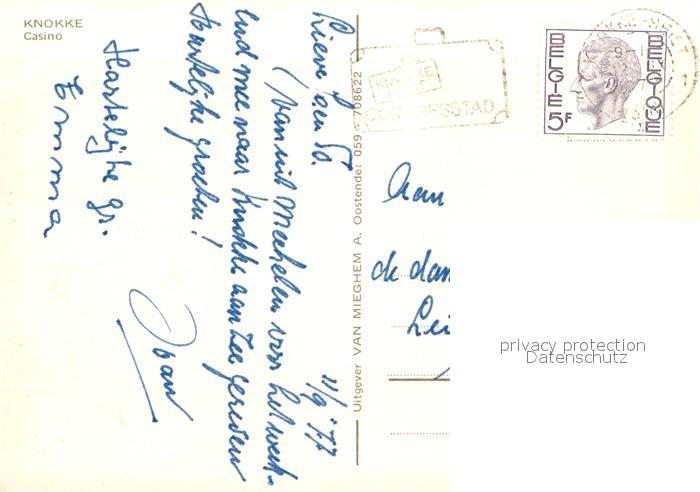 KNOKKE
Casino
11/9 '77
Lieve
Vanuit Mechelen voor het week-
end mee naar Knokke aan Zee gereden
Hartelijke groeten!
Hartelijke gr.
Emma
Uitgever VAN MIEGHEM A. Oostende: 059 - 708622
KNOKKE
BELGIË
BELGIQUE
5F
Aan
de
privacy protection
Datenschutz